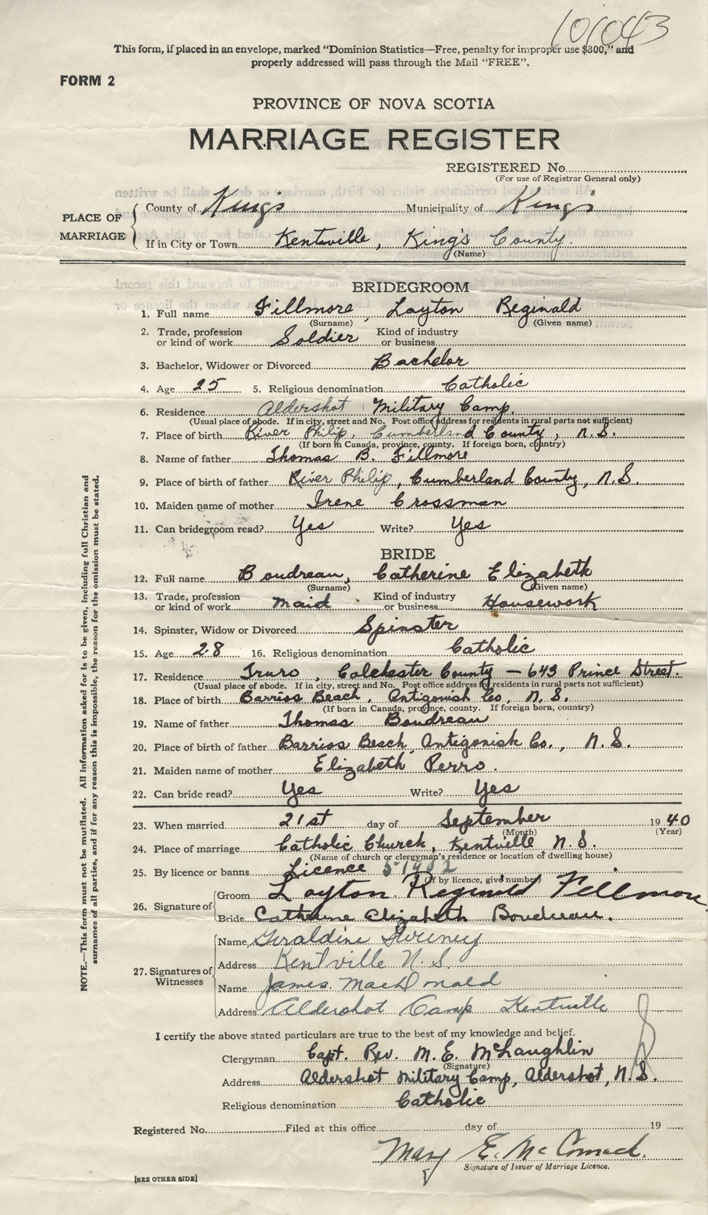 101043
This form, if placed in an envelope, marked "Dominion Statistics—Free, penalty for improper use $300," and
properly addressed will pass through the Mail "FREE".
FORM 2
PROVINCE OF NOVA SCOTIA
MARRIAGE REGISTER
REGISTERED No.
(For use of Registrar General only)
PLACE OF MARRIAGE
County of King's Municipality of King's
If in City or Town Kentville, King's County.
(Name)
BRIDEGROOM
1. Full name Fillmore, Layton Reginald
(Surname) (Given name)
2. Trade, profession or kind of work Soldier Kind of industry or business
3. Bachelor, Widower or Divorced Bachelor
4. Age 25 5. Religious denomination Catholic
6. Residence Aldershot Military Camp
(Usual place of abode. If in city, street and No. Post office address for residents in rural parts not sufficient)
7. Place of birth River Philip, Cumberland County, N.S.
(If born in Canada, province, county. If foreign born, country)
8. Name of father Thomas B. Fillmore
9. Place of birth of father River Philip, Cumberland County, N.S.
10. Maiden name of mother Irene Crossman
11. Can bridegroom read? Yes Write? Yes
BRIDE
12. Full name Boudreau, Catherine Elizabeth
(Surname) (Given name)
13. Trade, profession or kind of work maid Kind of industry or business Housework
14. Spinster, Widow or Divorced Spinster
15. Age 28 16. Religious denomination Catholic
17. Residence Truro, Colchester County — 643 Prince Street.
(Usual place of abode. If in city, street and No. Post office address for residents in rural parts not sufficient)
18. Place of birth Barrios Beach, Antigonish Co., N.S.
(If born in Canada, province, county. If foreign born, country)
19. Name of father Thomas Boudreau
20. Place of birth of father Barrios Beach, Antigonish Co., N.S.
21. Maiden name of mother Elizabeth Perro.
22. Can bride read? Yes Write? Yes
23. When married 21st day of September 1940
(Month) (Year)
24. Place of marriage Catholic Church, Kentville N.S.
(Name of church or clergyman's residence or location of dwelling house)
25. By licence or banns Licence
(If by licence, give number)
26. Signature of
Groom Layton Reginald Fillmore
Bride Catherine Elizabeth Boudreau.
27. Signatures of Witnesses
Name Geraldine Sweeney
Address Kentville N.S.
Name James MacDonald
Address Aldershot Camp Kentville
I certify the above stated particulars are true to the best of my knowledge and belief.
Clergyman Capt. Rev. M. E. McLaughlin
(Signature)
Address Aldershot Military Camp, Aldershot, N.S.
Religious denomination Catholic
Registered No. Filed at this office day of 19
Mary E. McCormack.
Signature of Issuer of Marriage Licence.
[SEE OTHER SIDE]
NOTE.—This form must not be mutilated. All information asked for is to be given, including full Christian and
surnames of all parties, and if for any reason this is impossible, the reason for the omission must be stated.